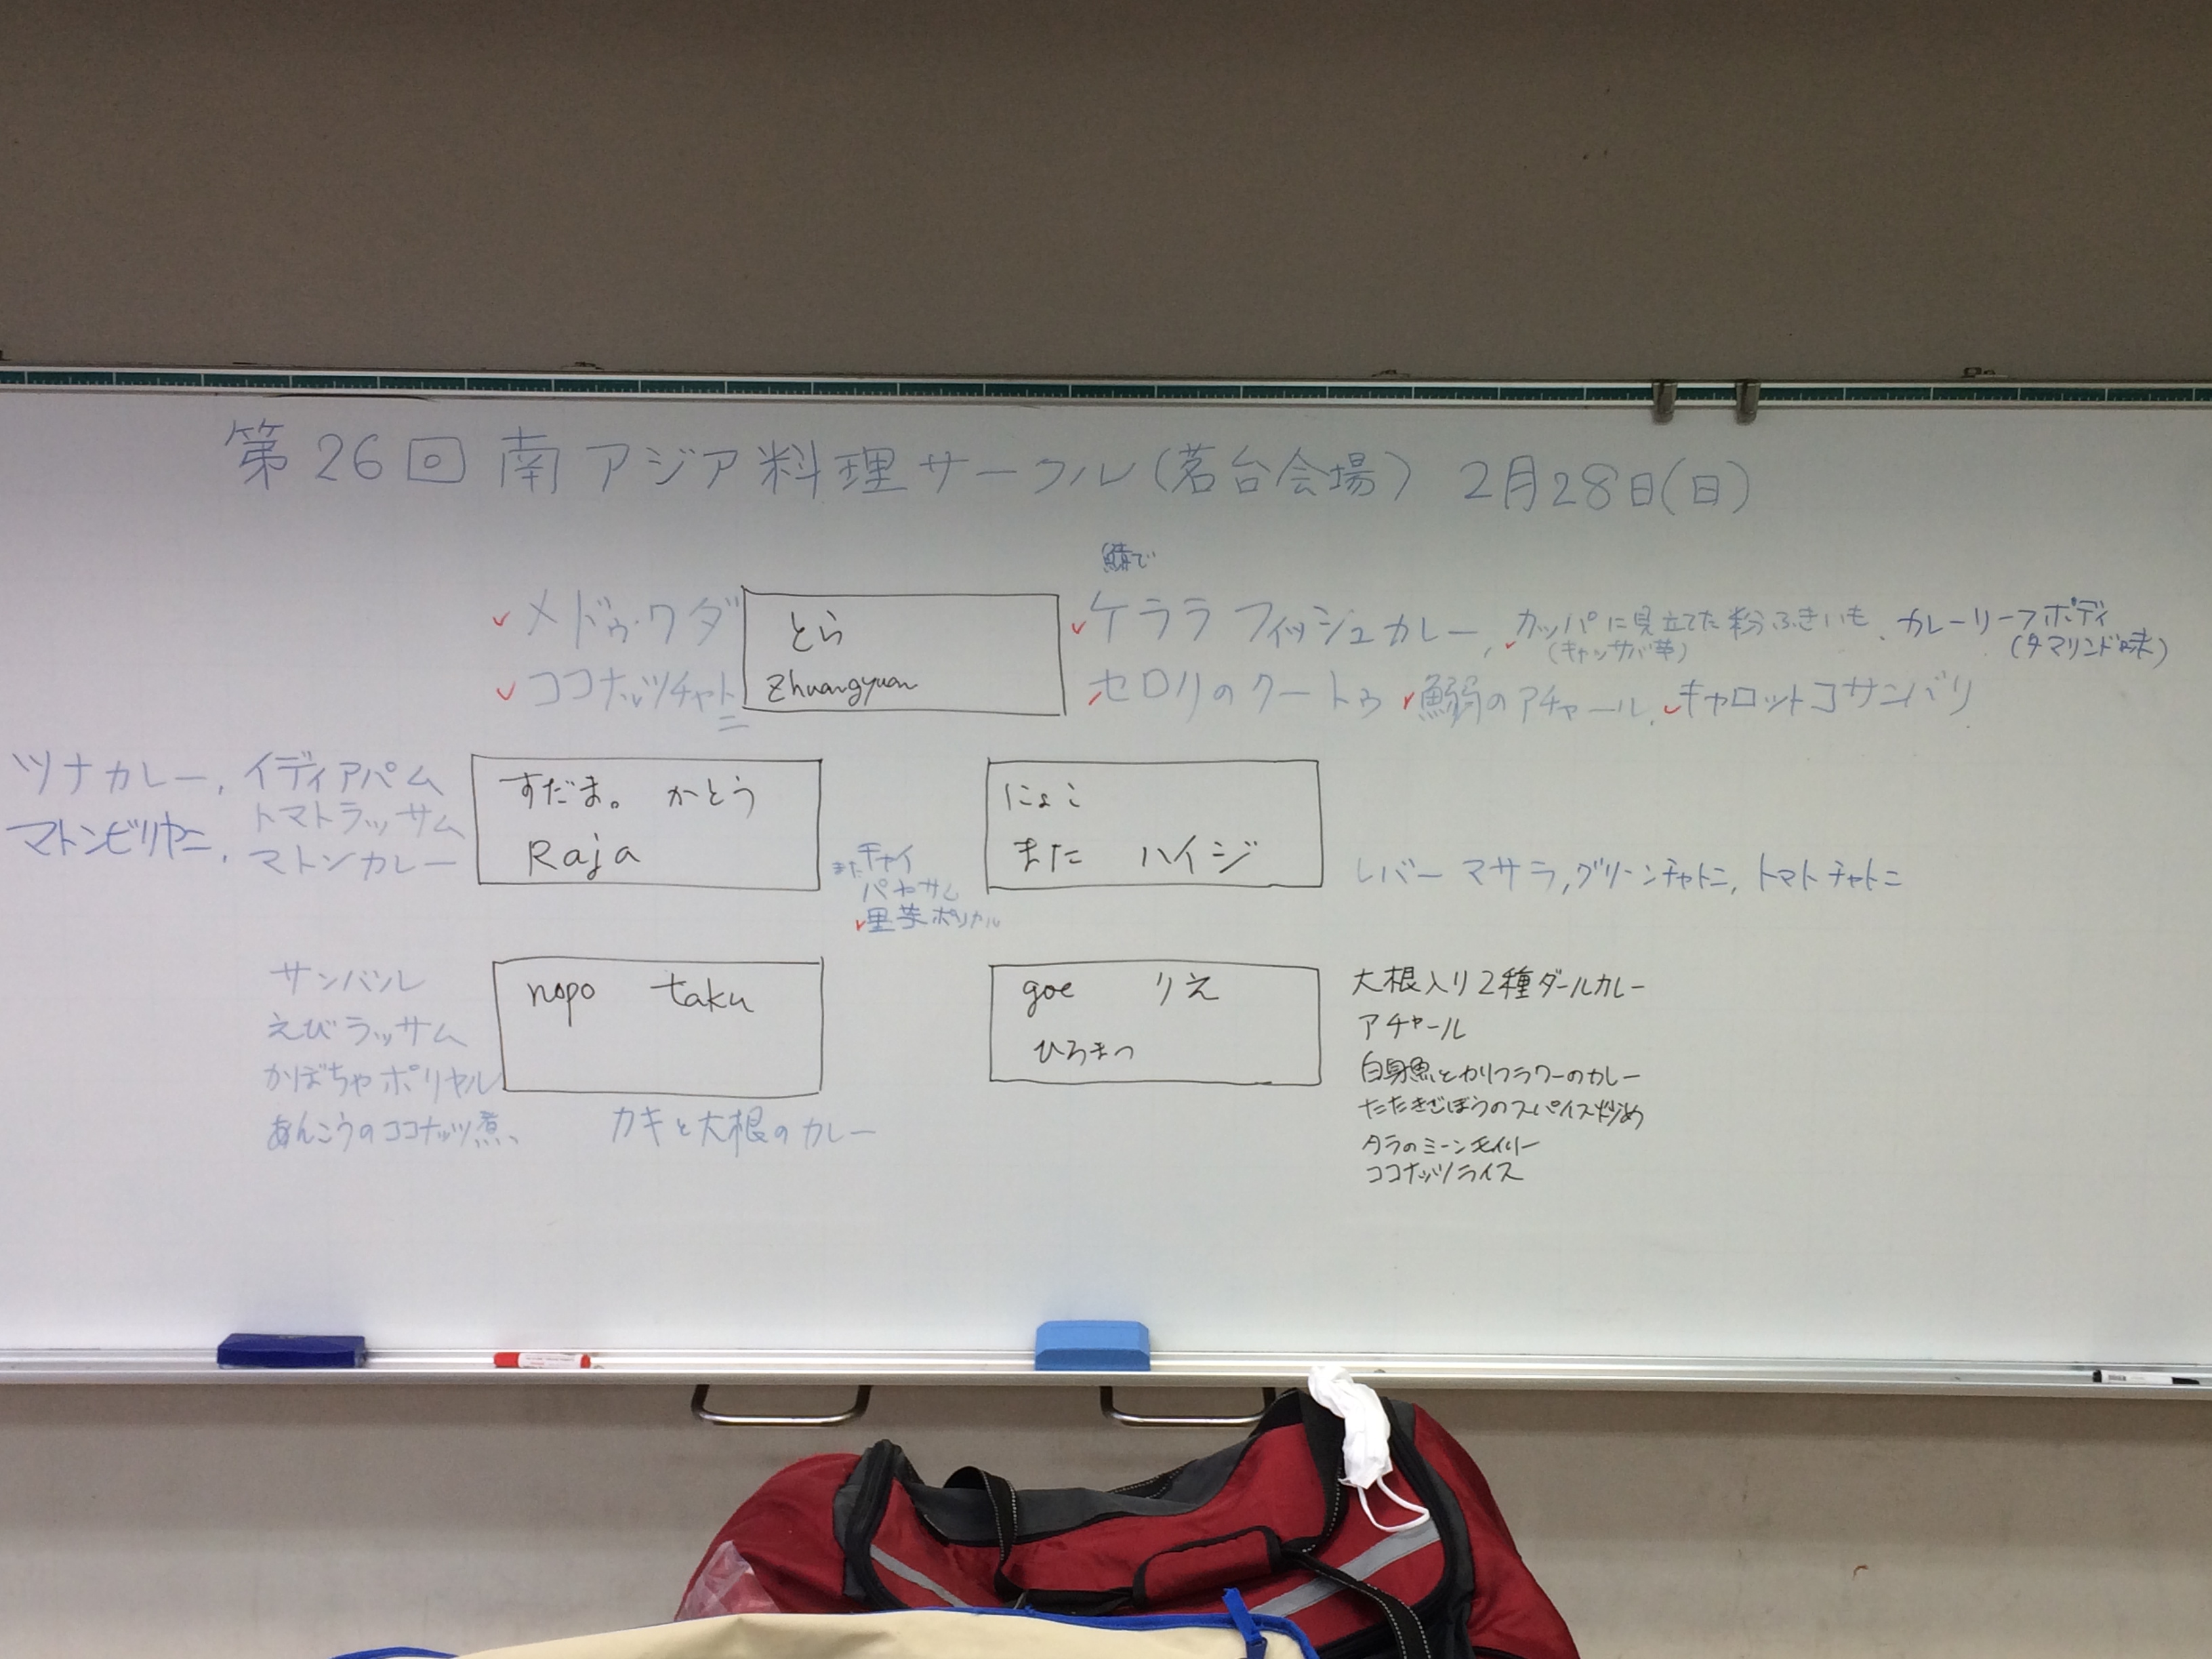 第26回 南アジア料理サークル(茗台会場) 2月28日(日)
メドゥ・ワダ
ココナッツチャトニ
とら
Zhuangyuan
鯖で
ケララ フィッシュカレー, カッパに見立てた粉ふきいも、カレーリーフポディ
(キャッサバ芋)
(タマリンド味)
セロリのクートゥ 鰯のアチャール, キャロットコサンバリ
ツナカレー, イディアパム
トマトラッサム
マトンビリヤニ, マトンカレー
すだま。 かとう
Raja
また チャイ
パヤサム
里芋ポリヤル
にょこ
また ハイジ
レバー マサラ, グリーンチャトニ, トマトチャトニ
サンバル
えびラッサム
かぼちゃポリヤル
あんこうのココナッツ煮、 カキと大根のカレー
nopo taku
goe りえ
ひろまつ
大根入り2種ダールカレー
アチャール
白身魚とカリフラワーのカレー
たたきごぼうのスパイス炒め
タラのミーンモイリー
ココナッツライス